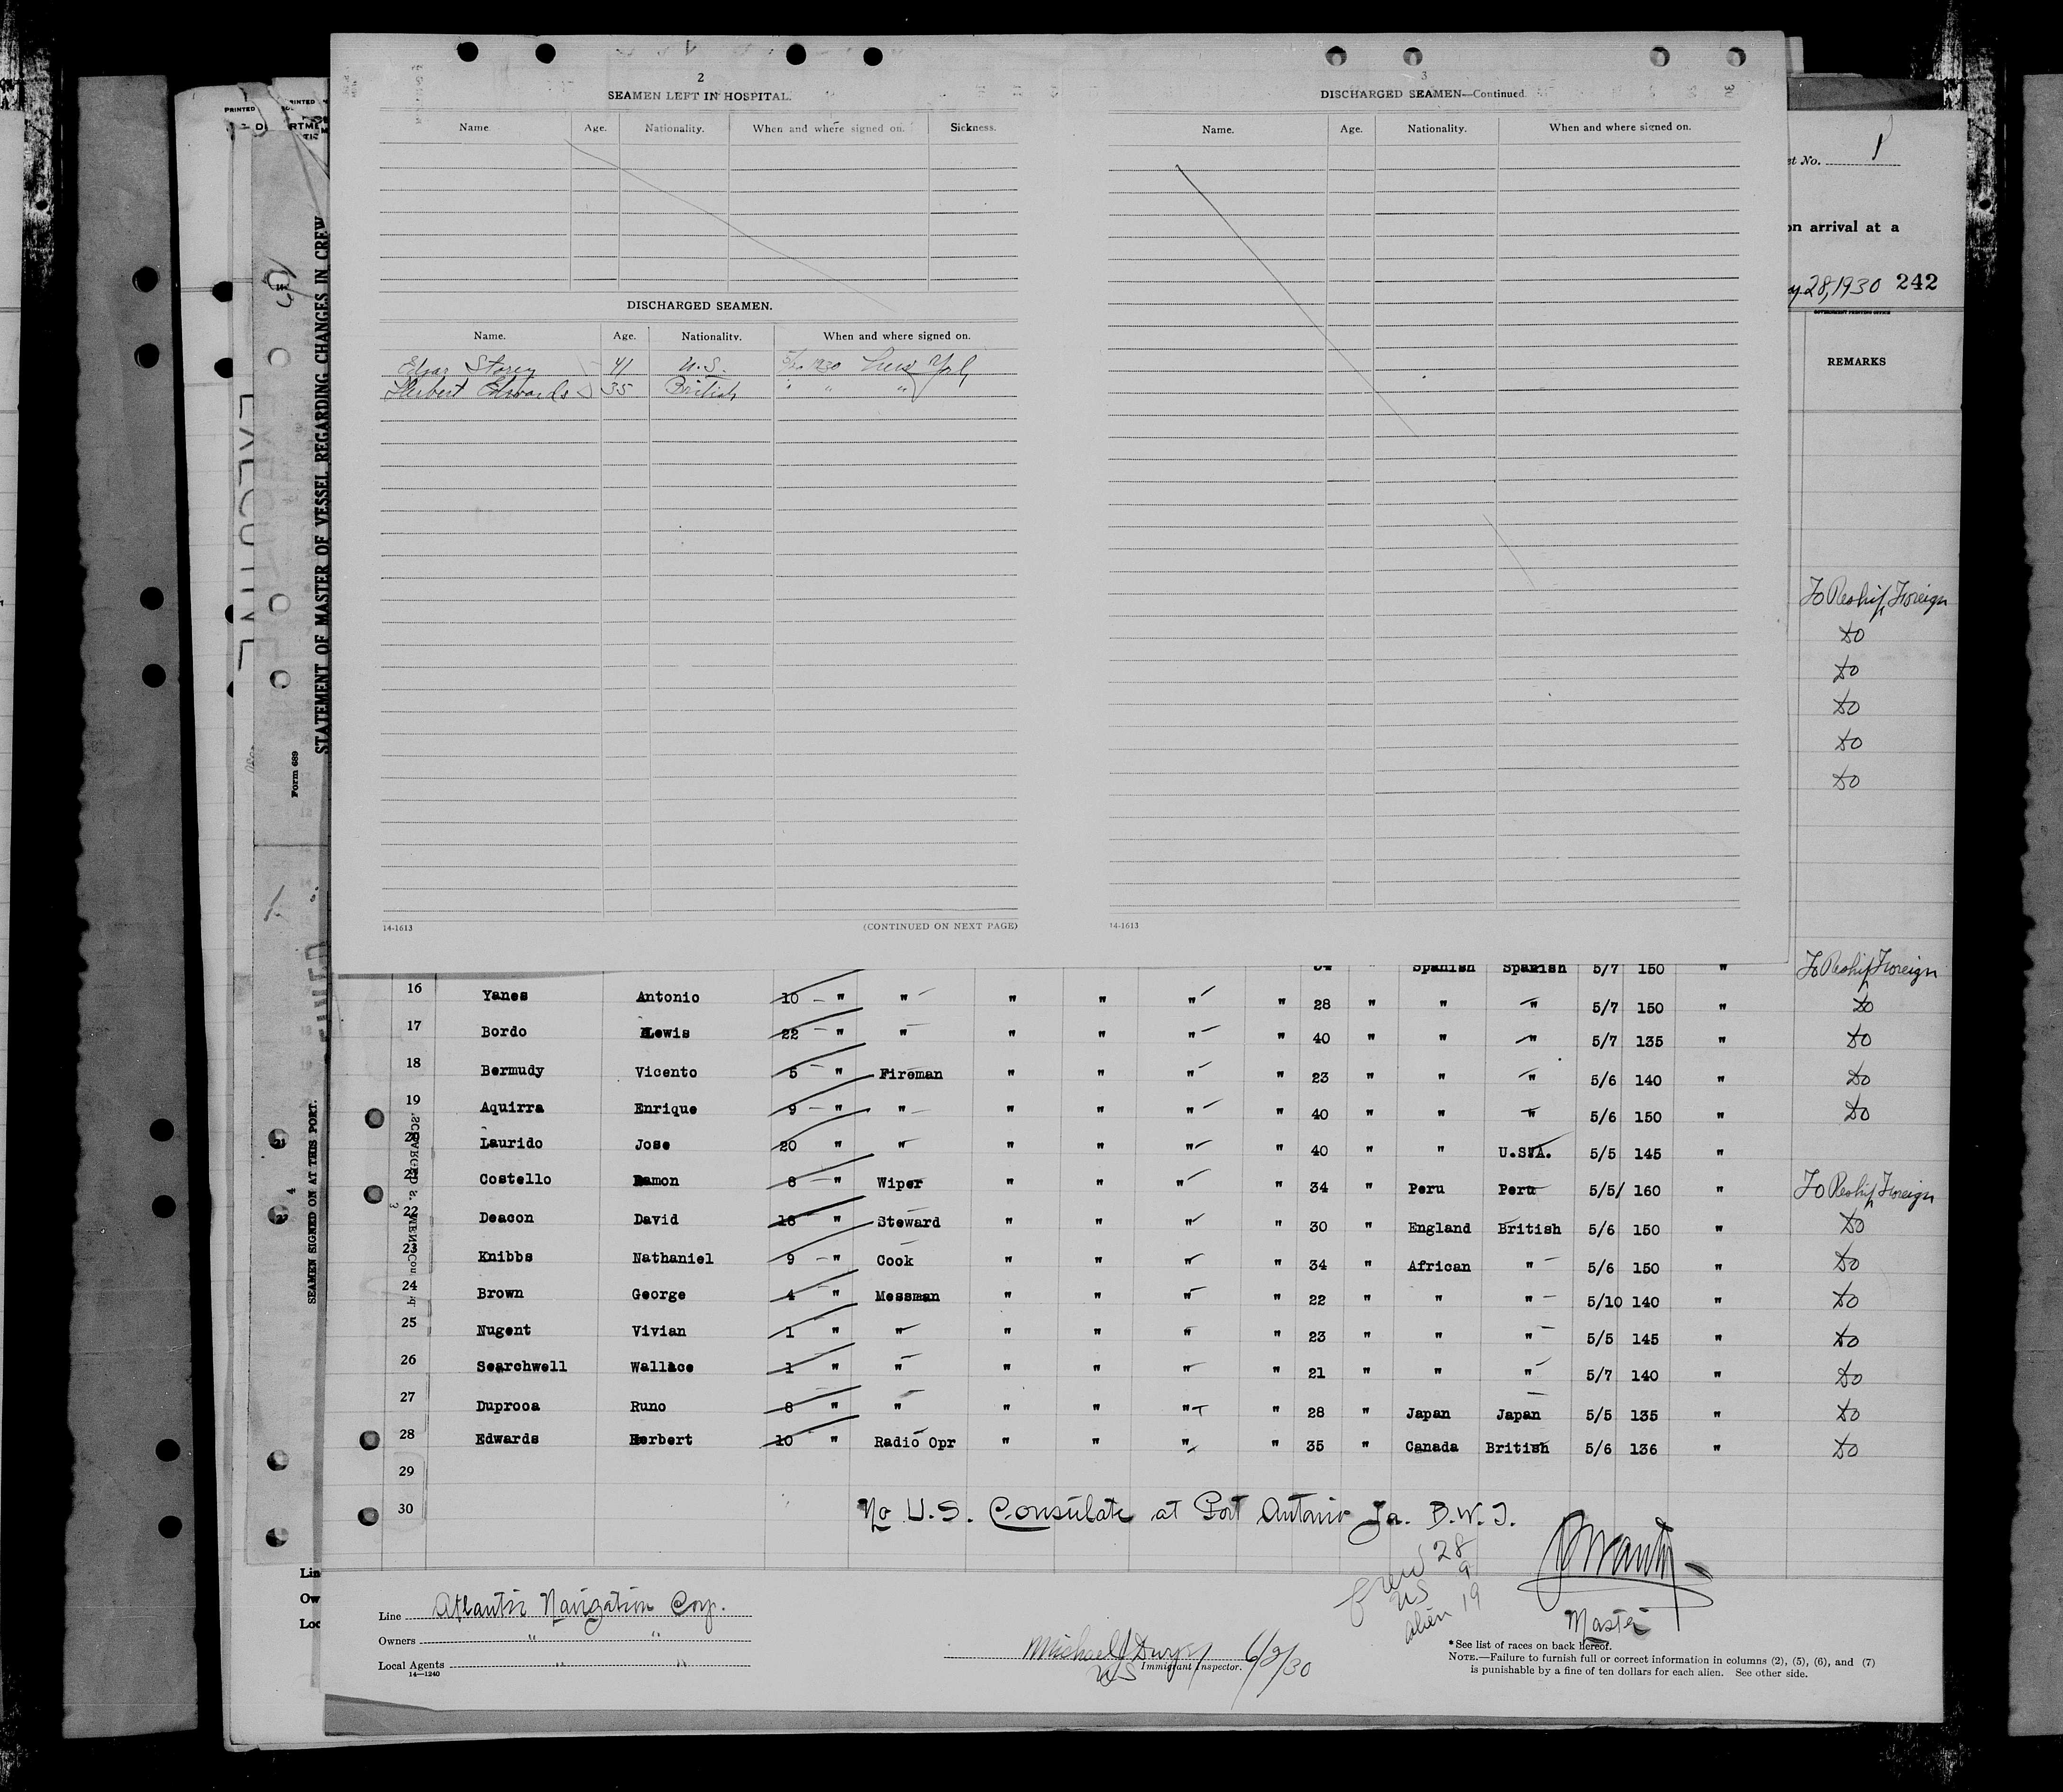 2
SEAMEN LEFT IN HOSPITAL.
Name. Age. Nationality. When and where signed on. Sickness.
DISCHARGED SEAMEN.
Name. Age. Nationality. When and where signed on.
Edgar Storey 41 U.S. 1930 New York
Herbert Edwards 35 British " " "
14-1613 (CONTINUED ON NEXT PAGE)
3
DISCHARGED SEAMEN—Continued.
Name. Age. Nationality. When and where signed on.
14-1613
STATEMENT OF MASTER OF VESSEL REGARDING CHANGES IN CREW
Form 689
SEAMEN SIGNED ON AT THIS PORT.
PRINTED
No. 1
on arrival at a
28, 1930 242
GOVERNMENT PRINTING OFFICE
REMARKS
To Reship Foreign
Do
Do
Do
Do
Do
34 " Spanish Spanish 5/7 150 " To Reship Foreign
16 Yanes Antonio 10 " " " " " " 28 " " " 5/7 150 " Do
17 Bordo Lewis 22 " " " " " " 40 " " " 5/7 135 " Do
18 Bermudy Vicento 5 " Fireman " " " " 23 " " " 5/6 140 " Do
19 Aquirra Enrique 9 " " " " " " 40 " " " 5/6 150 " Do
20 Laurido Jose 20 " " " " " " 40 " " U.S.A. 5/5 145 "
21 Costello Ramon 8 " Wiper " " " " 34 " Peru Peru 5/5/ 160 " To Reship Foreign
22 Deacon David 18 " Steward " " " " 30 " England British 5/6 150 " Do
23 Knibbs Nathaniel 9 " Cook " " " " 34 " African " 5/6 150 " Do
24 Brown George 4 " Messman " " " " 22 " " " 5/10 140 " Do
25 Nugent Vivian 1 " " " " " " 23 " " " 5/5 145 " Do
26 Searchwell Wallace 1 " " " " " " 21 " " " 5/7 140 " Do
27 Duprooa Runo 8 " " " " " " 28 " Japan Japan 5/5 135 " Do
28 Edwards Herbert 10 " Radio Opr " " " " 35 " Canada British 5/6 136 " Do
29
30 No U.S. Consulate at Port Antonio Ja. B.W.I.
Crew 28
US 9
Alien 19
Master
Line Atlantic Navigation Corp.
Owners " "
Local Agents " "
14—1240
Michael J Dwyer 6/2/30
US Immigrant Inspector.
*See list of races on back hereof.
NOTE.—Failure to furnish full or correct information in columns (2), (5), (6), and (7)
is punishable by a fine of ten dollars for each alien. See other side.